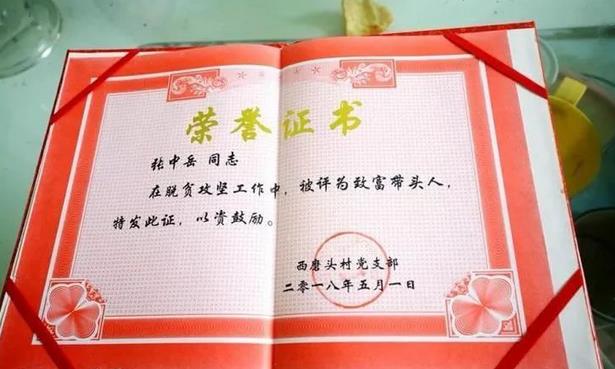 荣誉证书
张中岳 同志
在脱贫攻坚工作中，被评为致富带头人，
特发此证，以资鼓励。
西磨头村党支部
二零一八年五月一日